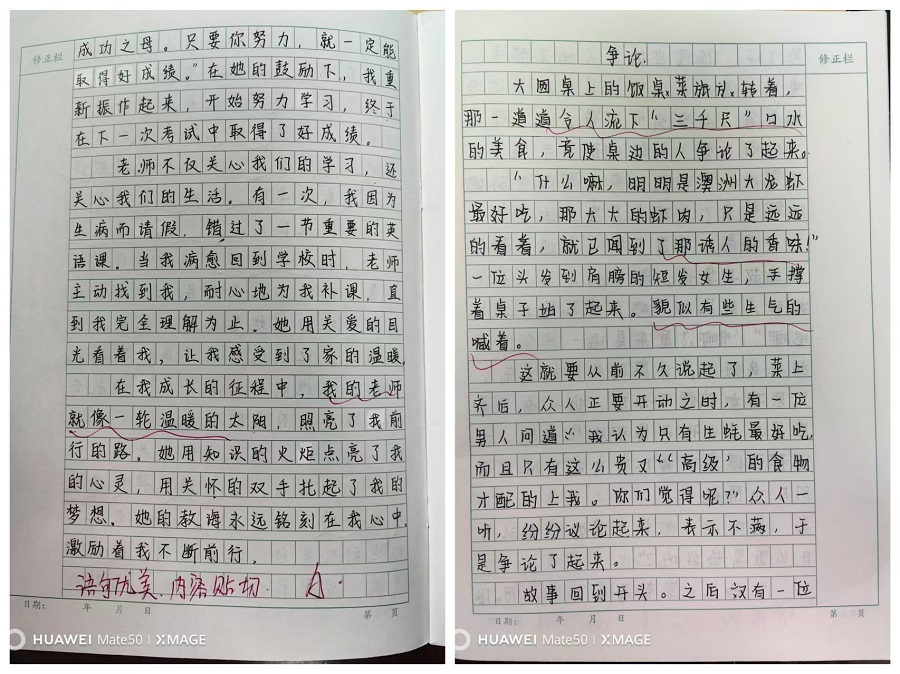 修正栏
成功之母。只要你努力，就一定能
取得好成绩。”在她的鼓励下，我重
新振作起来，开始努力学习，终于
在下一次考试中取得了好成绩。
老师不仅关心我们的学习，还
关心我们的生活。有一次，我因为
生病而请假，错过了一节重要的英
语课。当我病愈回到学校时，老师
主动找到我，耐心地为我补课，直
到我完全理解为止。她用关爱的目
光看着我，让我感受到了家的温暖。
在我成长的征程中，我的老师
就像一轮温暖的太阳，照亮了我前
行的路。她用知识的火炬点亮了我
的心灵，用关怀的双手托起了我的
梦想。她的教诲永远铭刻在我心中，
激励着我不断前行。
语句优美、内容贴切.
日期： 年 月 日
第 页
HUAWEI Mate50 | XMAGE
修正栏
争论.
大圆桌上的饭桌菜旅转着，
那一道道令人流下“三千尺”口水
的美食，竟使桌边的人争论了起来。
“什么嘛，明明是澳洲大龙虾
最好吃，那大大的虾肉，只是远远
的看着，就已闻到了那诱人的香味！”
一位头发到肩膀的短发女生，手撑
着桌子站了起来。貌似有些生气的
喊着。
这就要从前不久说起了，菜上
齐后，众人正要开动之时，有一位
男人问道：“我认为只有生蚝最好吃，
而且只有这么贵又“高级’的食物
才配的上我。你们觉得呢？”众人一
听，纷纷议论起来，表示不满，于
是争论了起来。
故事回到开头。之后又有一位
日期： 年 月 日
第 页
HUAWEI Mate50 | XMAGE